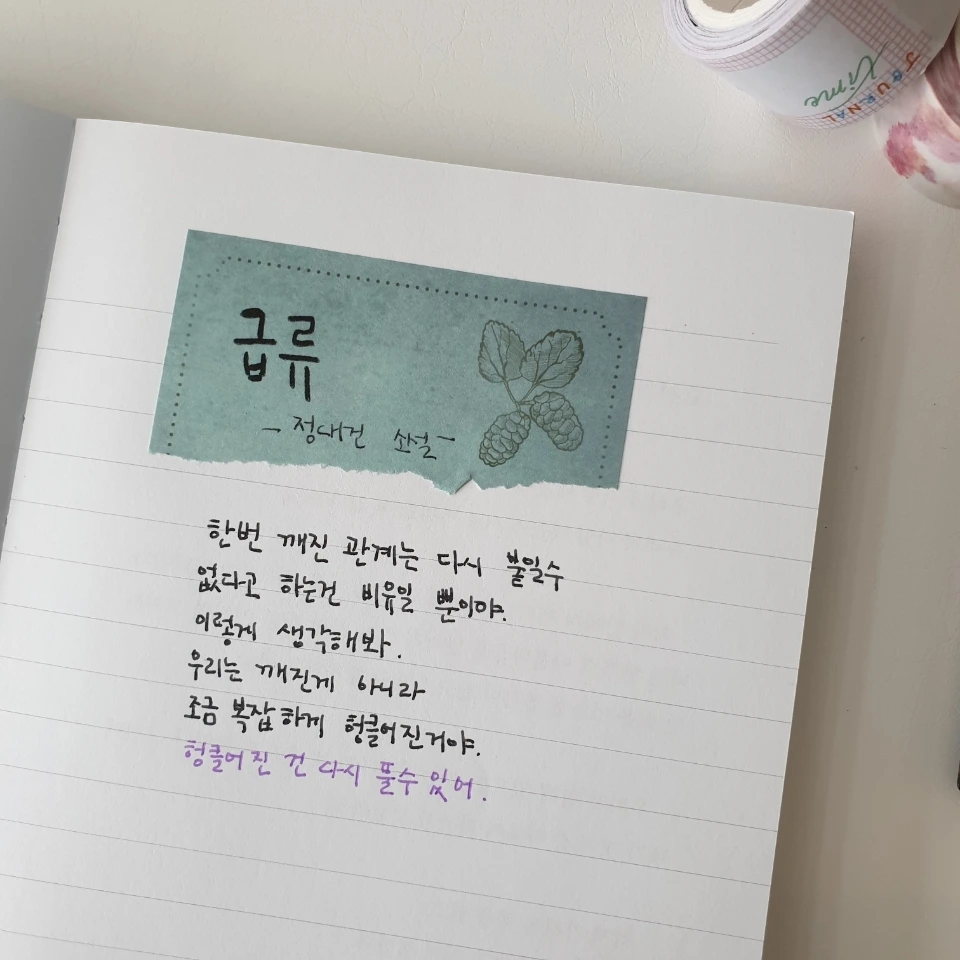 JOURNAL
time
급류
- 정대건 소설 -
한번 깨진 관계는 다시 붙일수
없다고 하는건 비유일 뿐이야.
이렇게 생각해봐.
우리는 깨진게 아니라
조금 복잡하게 헝클어진거야.
헝클어진 건 다시 풀수 있어.